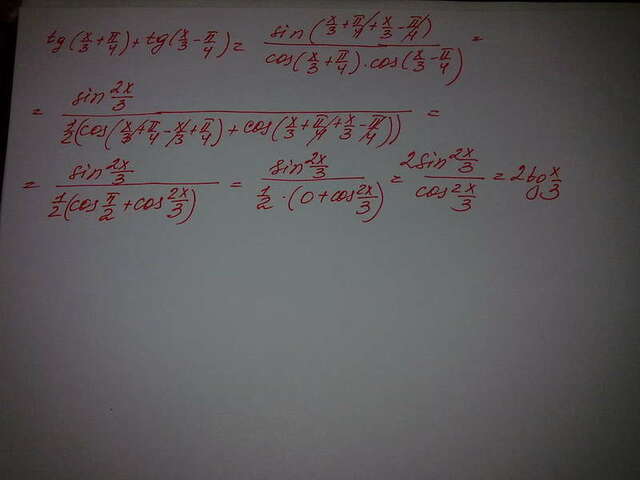 tg(x/3 + π/4) + tg(x/3 - π/4) = sin(x/3 + π/4 + x/3 - π/4) / cos(x/3 + π/4) · cos(x/3 - π/4) =
= sin 2x/3 / 1/2(cos(x/3 + π/4 - x/3 + π/4) + cos(x/3 + π/4 + x/3 - π/4)) =
= sin 2x/3 / 1/2(cos π/2 + cos 2x/3) = sin 2x/3 / 1/2 · (0 + cos 2x/3) = 2 sin 2x/3 / cos 2x/3 = 2 tg x/3